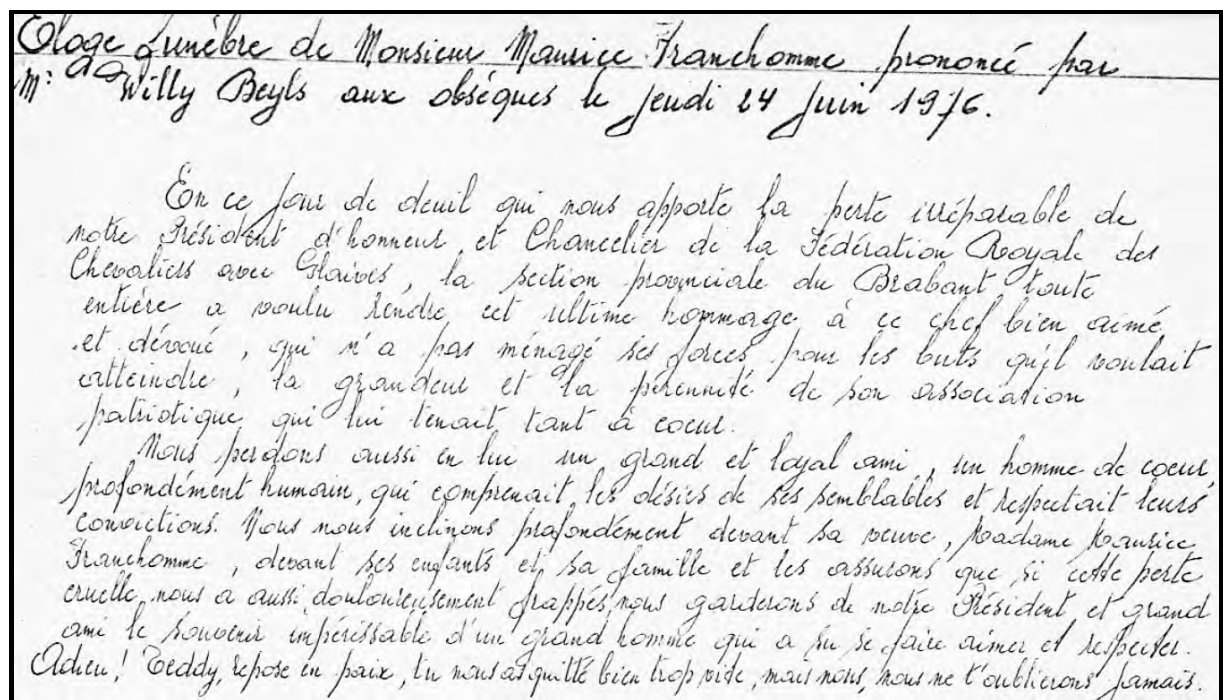 Eloge funèbre de Monsieur Maurice Franchomme prononcé par
Mr Willy Beyls aux obsèques le jeudi 24 Juin 1976.
En ce jour de deuil qui nous apporte la perte irréparable de
notre Président d'honneur et Chancelier de la Fédération Royale des
Chevaliers avec Glaives, la section provinciale du Brabant toute
entière a voulu rendre cet ultime hommage à ce chef bien aimé
et dévoué, qui n'a pas ménagé ses forces pour les buts qu'il voulait
atteindre, la grandeur et la pérennité de son association
patriotique qui lui tenait tant à coeur.
Nous perdons aussi en lui un grand et loyal ami, un homme de coeur,
profondément humain, qui comprenait les désirs de ses semblables et respectait leurs
convictions. Nous nous inclinons profondément devant sa veuve, Madame Maurice
Franchomme, devant ses enfants et sa famille et les assurons que si cette perte
cruelle nous a aussi douloureusement frappés, nous garderons de notre Président et grand
ami le souvenir impérissable d'un grand homme qui a su se faire aimer et respecter.
Adieu! Teddy, repose en paix, tu nous as quitté bien trop vite, mais nous, nous ne t'oublierons jamais.